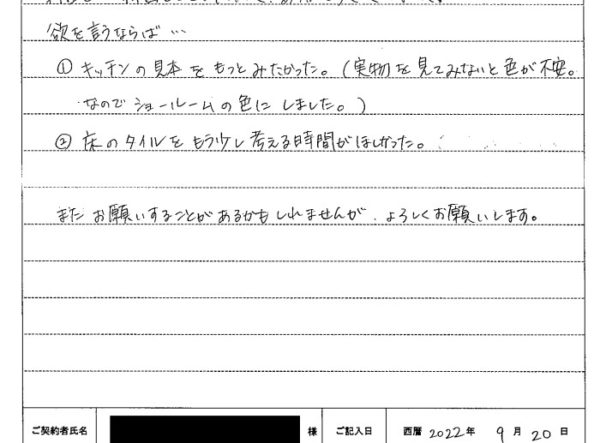 欲を言うならば…
① キッチンの見本をもっとみたかった。(実物を見てみないと色が不安。
なのでショールームの色にしました。)
② 床のタイルをもう少し考える時間がほしかった。
またお願いすることがあるかもしれませんが、よろしくお願いします。
ご契約者氏名 様 ご記入日 西暦 2022年 9月 20日